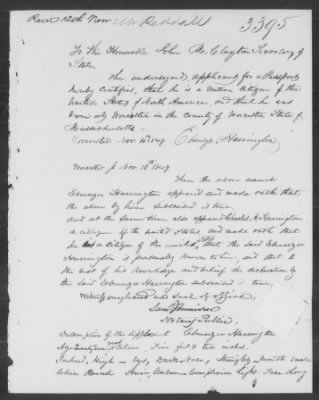 Recd 12th Nov
3395
To the Honorable John M. Clayton Secretary of
State.
The undersigned, applicant for a Passport
hereby certifies, that he is a native citizen of the
United States of North America and that he was
born at Worcester in the County of Worcester State of
Massachusetts.
Worcester Nov. 10th 1849
Ebenezer Harrington
Worcester ss Nov. 10th 1849
Then the above named
Ebenezer Harrington appeared and made oath that
the above by him subscribed is true,
And at the same time also appeared Charles A Harrington
a citizen of the United States, and made oath that
he is a citizen of the United States that the said Ebenezer
Harrington is personally known to him, and that to
the best of his knowledge and belief the declaration by
the said Ebenezer Harrington subscribed is true,
Witness my hand and Seal of office,
Notary Public.
Description of the applicant Ebenezer Harrington
Age Stature, Five feet & ten inches.
Forehead, High Eyes, Dark Nose, Straight Mouth Small
Chin Round Hair, Auburn Complexion light Face long